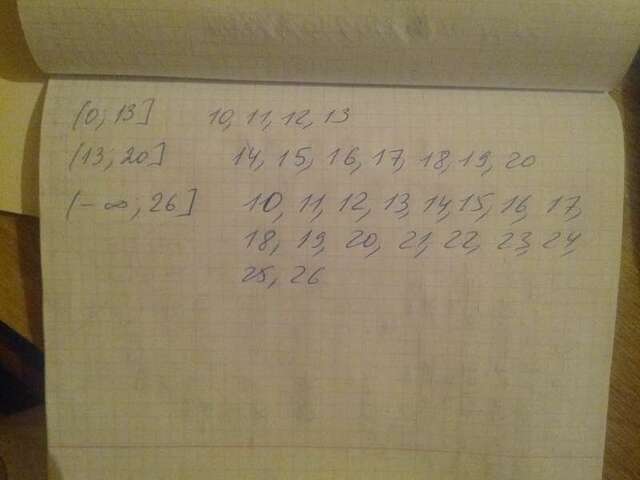 (0; 13] 10, 11, 12, 13
(13; 20] 14, 15, 16, 17, 18, 19, 20
(-∞, 26] 10, 11, 12, 13, 14, 15, 16, 17,
18, 19, 20, 21, 22, 23, 24,
25, 26